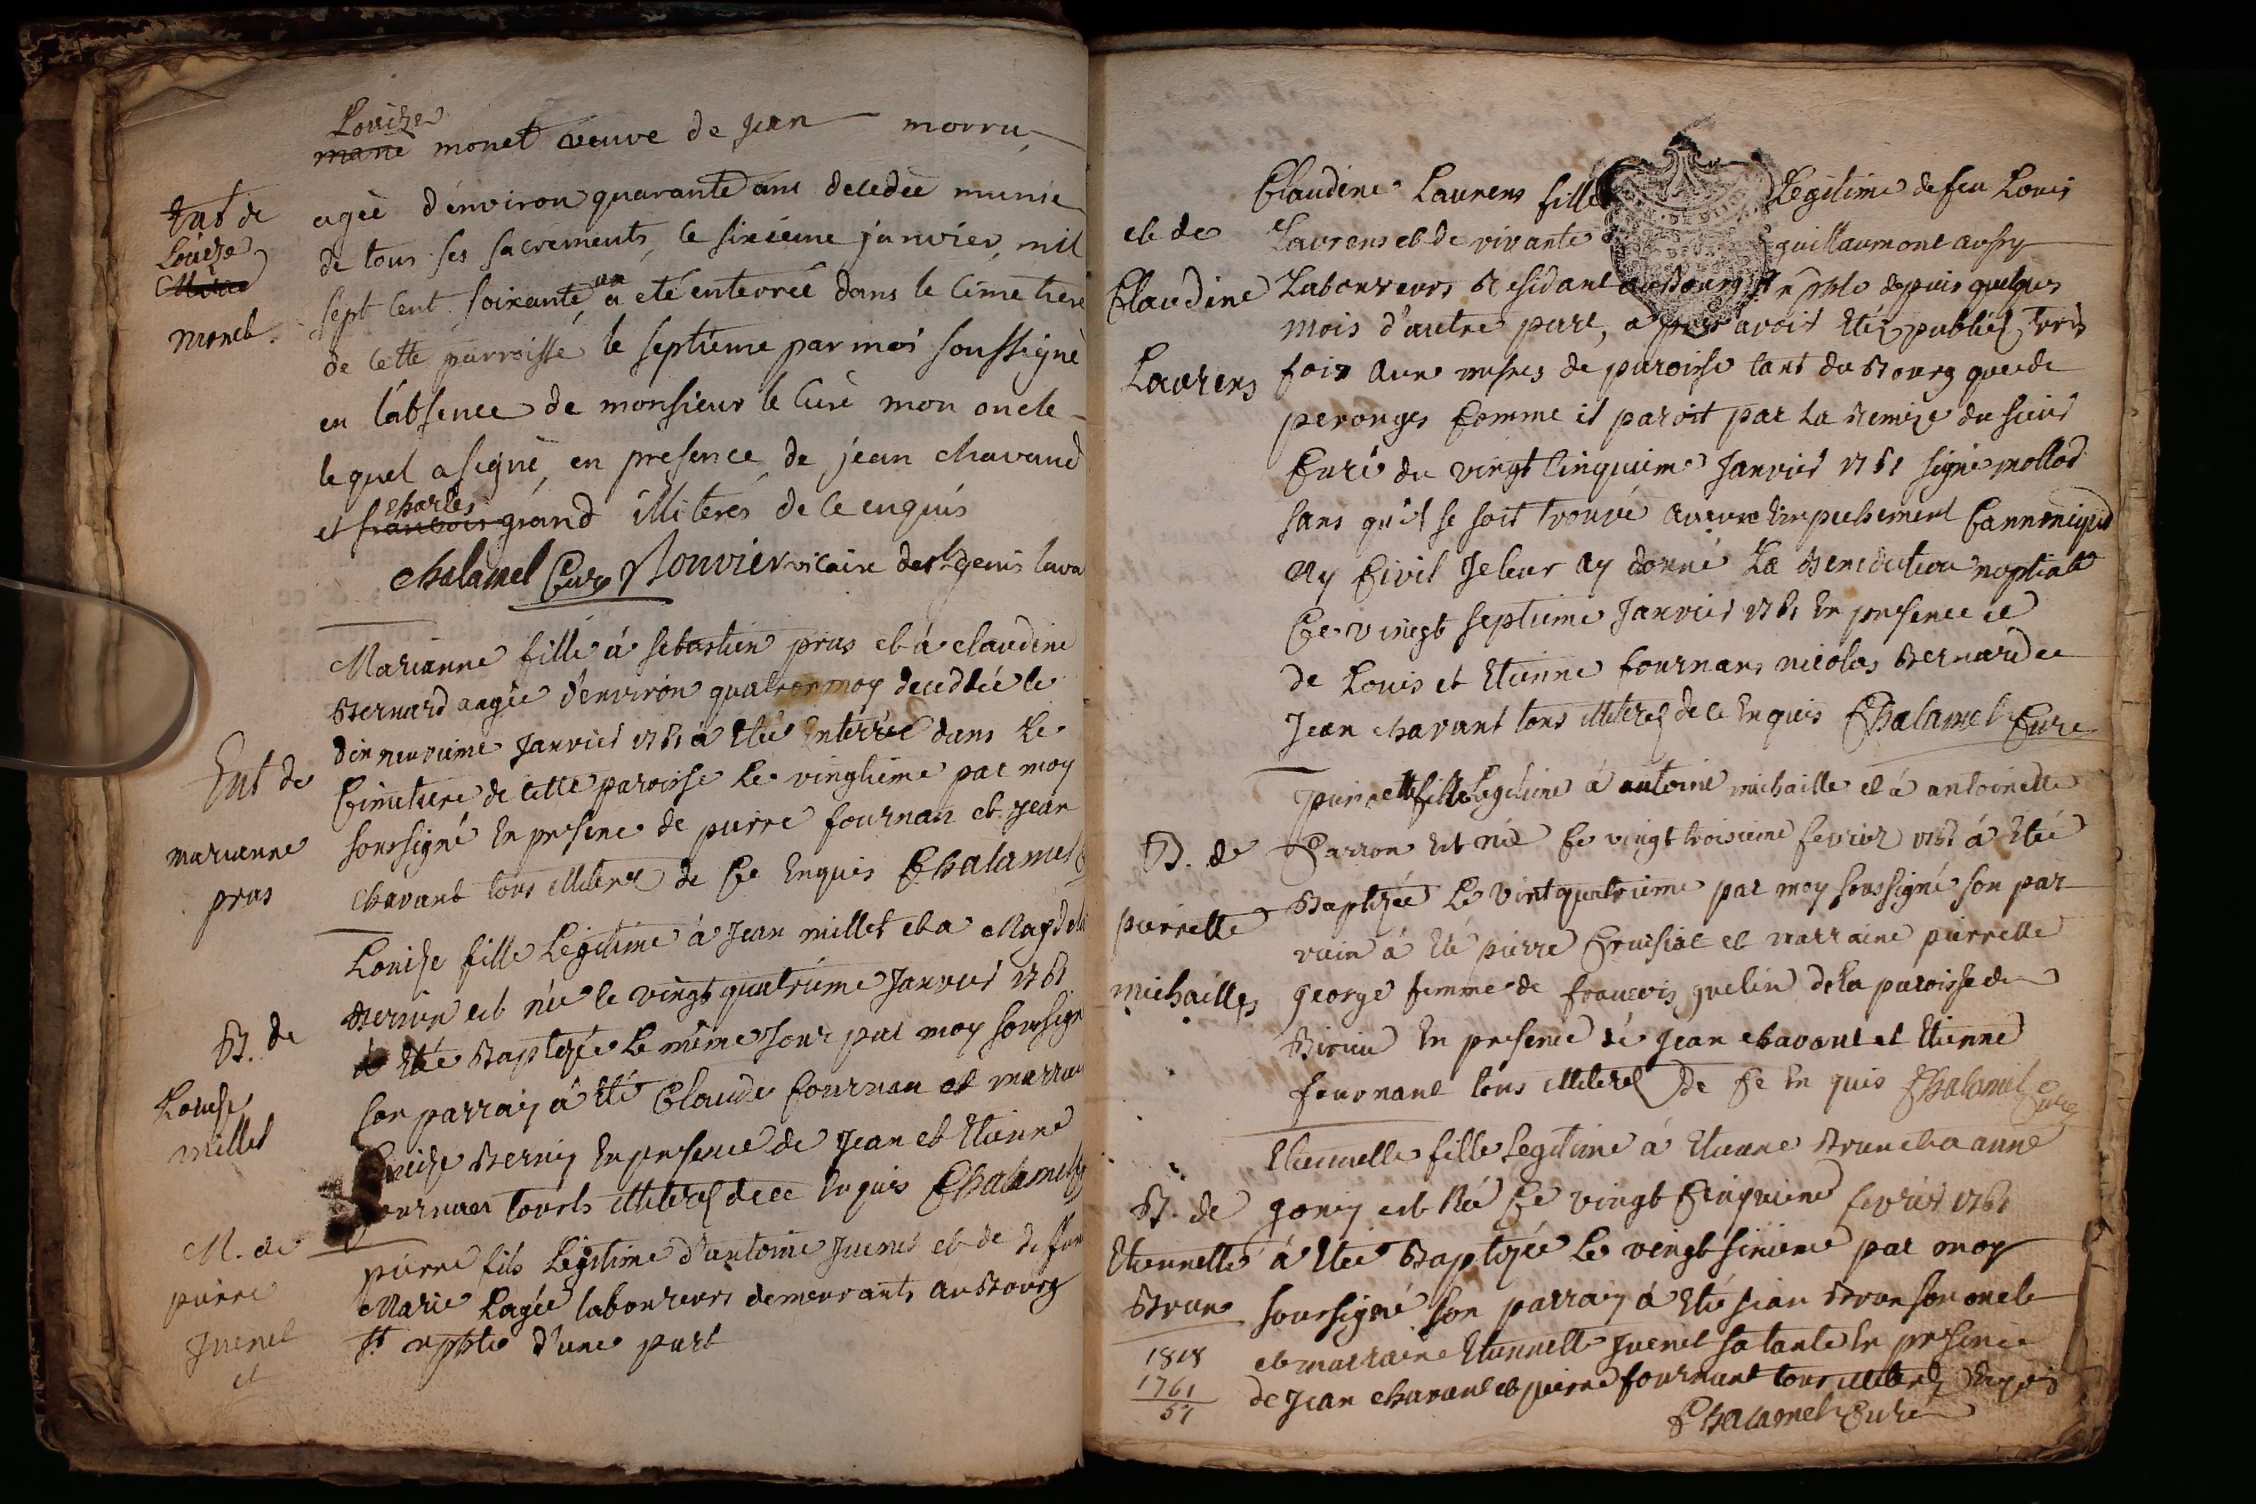 Louize
marie monet veuve de Jean morru
Ent de
Louize
Marie
monet.
agée d'environ quarante ans decedée munie
de tous ses sacrements, le sixieme janvier, mil
sept cent soixante un a eté enterrée dans le cimetiere
de cette parroisse le septieme par moi soussigné
en l'absence de monsieur le curé mon oncle
lequel a signé, en presence de jean chavand
charles
et francois grand illiterés de ce enquis
Chalamel Curé Bouvier vicaire de st genis lava
Marianne fille à sebastien pras et à claudine
Bernard aagée d'environ quatre moy decedée le
Ent de
marianne
pras
dix neuvieme Janvier 1761 à eté Enterrée dans le
Cimetiere de cette paroisse Le vingtieme par moy
soussigné En presence de pierre fournan et jean
chavant tous illiterez de Ce Enquis Chalamel
Louize fille Legitime à Jean millet et a Magdel
B. de
Louise
millet
Bernin est née le vingt quatrieme Janvier 1761
à Eté Baptizée Le même Jour par moy soussign
son parrain à Eté Claude fournan et marrain
Louize Bernin En presence de Jean et Etienne
fournan touts illiterez de ce Enquis Chalamel
M. de
pierre
Juenet
et
pierre fils Legitime d'antoine Juenet et de deffun
Marie Lagée laboureurs demeurants au Bourg
St. crpble d'une part
Claudine Laurens fille Legitime de feu Louis
et de
Claudine
Laurens
Laurens et de vivante guillaumone aussy
Laboureurs Residant au Bourg St depuis quelques
mois d'autre part, apres avoir Etéz publiéz trois
fois aux messes de paroisse tant du Bourg que de
peronges Comme il paroit par La Remize du sieur
Curé du vingt cinquieme Janvier 1761 signé mollod
sans qu'il se soit trouvé aucune Empechement Cannonique
Ny Civil Je leur ay donné La Benediction nuptiale
Ce vingt septieme Janvier 1761 En presence de
de Louis et Etienne fournans nicolas Bernard et
Jean chavant tous illiterez de ce Enquis Chalamel Curé
pierrette fille Legitime à antoine michaille et à antoinette
B. de
pierrette
michailles
Carron est née Ce vingt troisieme fevrier 1761 à Eté
Baptizée Le vint quatrieme par moy soussigné son par
rain à Eté pierre Cruisiat et marraine pierrette
george femme de francois guelin de la paroisse de
Birieu En presence de Jean chavant et Etienne
fournant tous illiterez De Ce Enquis Chalamel Curé
Etiennette fille Legitime à Etienne Brun et a anne
B. de
Etiennette
Brun
gonin est Née Ce vingt Cinquieme fevrier 1761
à Etée Baptizée Le vingt sixieme par moy
soussigné son parrain à Eté jean Brun son oncle
et marraine Etiennette Juenet sa tante En presence
de Jean chavant et pierre fournant tous illiterez Enquis
Chalamel Curé
1818
1761
57